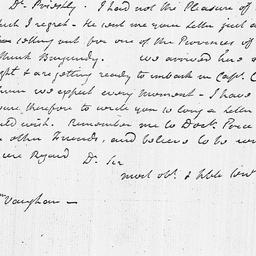 Dr. Priestly. I had not the Pleasure of
which I regret - He sent me your letter just a
setting out for one of the Provinces of
think Burgundy. We arrived here
& are getting ready to embark in Capt. C
whom we expect every moment - I have
therefore to write you so long a letter
wish. Remember me to Doctr. Price
other Friends, and believe to be
Regard Dr. Sir
most obt. & hble Serv
Vaughan -